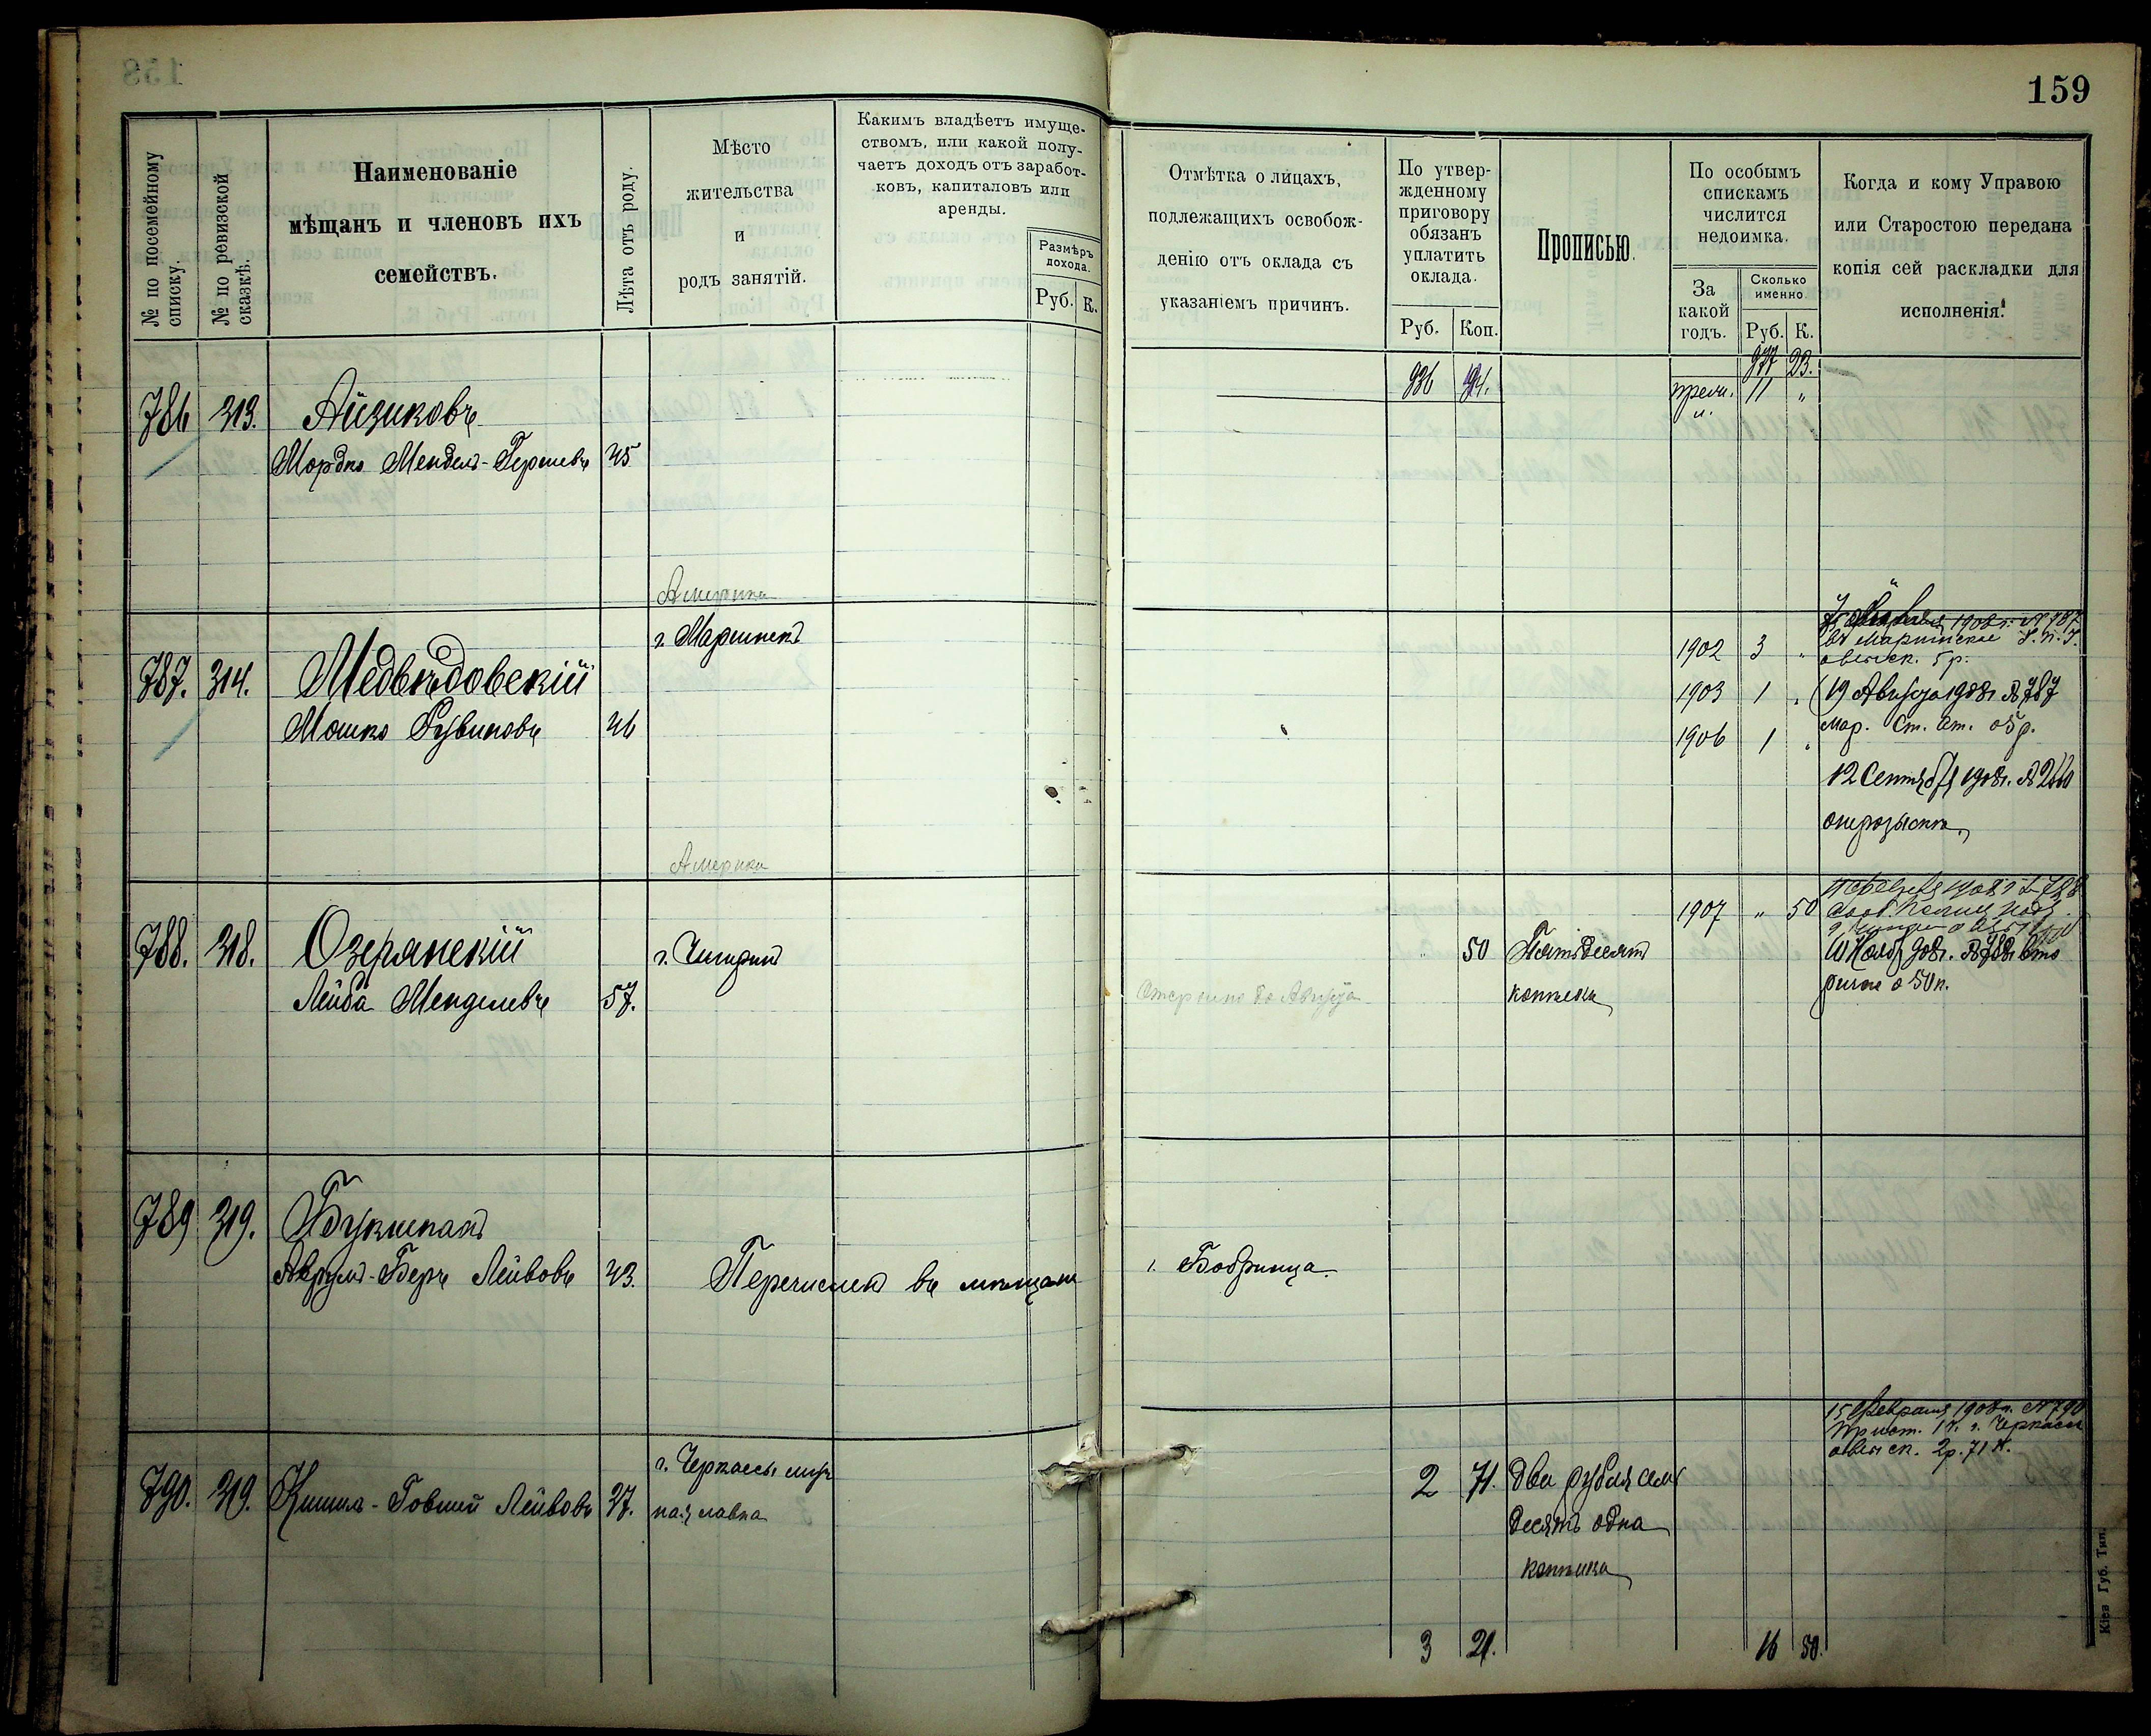 159
№ по посемейному списку.
№ по ревизской сказкѣ.
Наименованіе
мѣщанъ и членовъ ихъ
семействъ.
Лѣта отъ роду.
Мѣсто
жительства
и
родъ занятій.
Какимъ владѣетъ имуще-
ствомъ, или какой полу-
чаетъ доходъ отъ заработ-
ковъ, капиталовъ или
аренды.
Размѣръ
дохода.
Руб. К.
Отмѣтка о лицахъ,
подлежащихъ освобож-
денію отъ оклада съ
указаніемъ причинъ.
По утвер-
жденному
приговору
обязанъ
уплатить
оклада.
Руб. Коп.
Прописью.
По особымъ
спискамъ
числится
недоимка.
За
какой
годъ.
Сколько
именно.
Руб. К.
Когда и кому Управою
или Старостою передана
копія сей раскладки для
исполненія.
936 94.
977 23.
786 313. Айзиковъ
11 "
Мордко Мендель-Гершевъ 45
Америка
г. Маріинскъ
787. 314. Медвѣдовскій
Мошко Рувиновъ 46
1902 3 "
1903 1 "
1906 1 "
1908 г. № 787
въ Маріинское
о взыск. 5 р.
19 Августа 1908 г. № 787
Мар. обр.
12 Сентября 1908 г.
Америка
788. 318. Озерянскій
Лейба Менделевъ 57.
г. Чигиринъ
" 50 Пятьдесятъ
копѣекъ
1907 " 50
№ 788
о 50 к.
789 319. Букшпанъ
Аврумъ-Беръ Лейбовъ 43. Перечисленъ въ мѣщане г. Бобринца.
790. 319. Кишель-Говшій Лейбовъ 37.
г. Черкассы муч
ная лавка
2 71. Два рубля семь
десятъ одна
копѣйка
15 Февраля 1908 г. № 790
Прист. 1 ч. г. Черкассы
о взыск. 2 р. 71 к.
3 21.
16 50.
Кіев Губ. Тип.